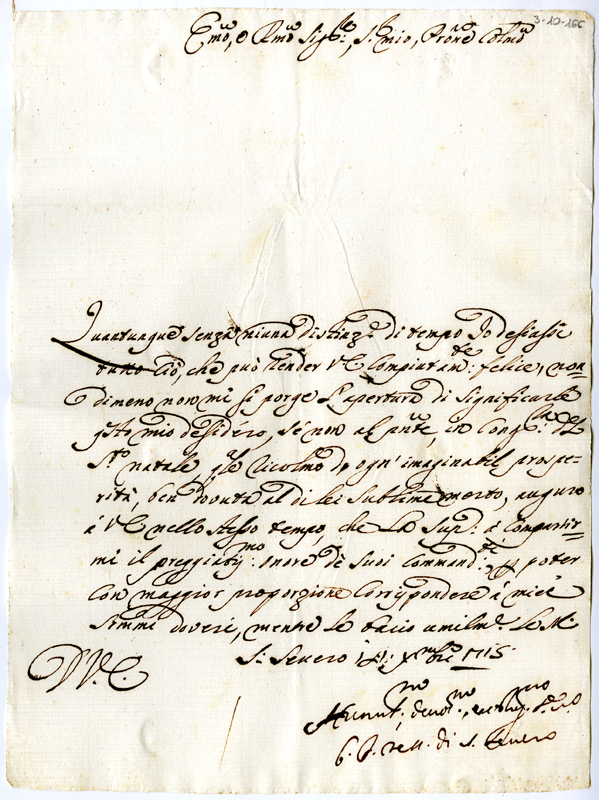 3-10-166
Emo, e Rmo Sigre, S. mio, Prone Colmo
Quantunque senza niuna distinz.e di tempo Io desiassi
tutto Ciò, che può render VE Compiutam.te felice, non
dimeno non mi si porge l'apertura di significarle
q.sto mio desidéro, se non al pnte, in Cong.ra del
S.to natale, q.le ricolmo d'ogn' imaginabil prospe-
rità, ben dovuta al di lei sublime merto, auguro
á VE nello stesso tempo, che La Sup.co á Compartir-
mi il preggiatis.mo onore dè suoi Command.ti p poter
Con maggior proporzione Corrispondere á miei
sommi doveri, mentre le bacio umilm.e le M.
S. Severo 18: Xmbre 1715
D V. E.
Humil.mo devot.mo, ed obblig.
di S. Severo